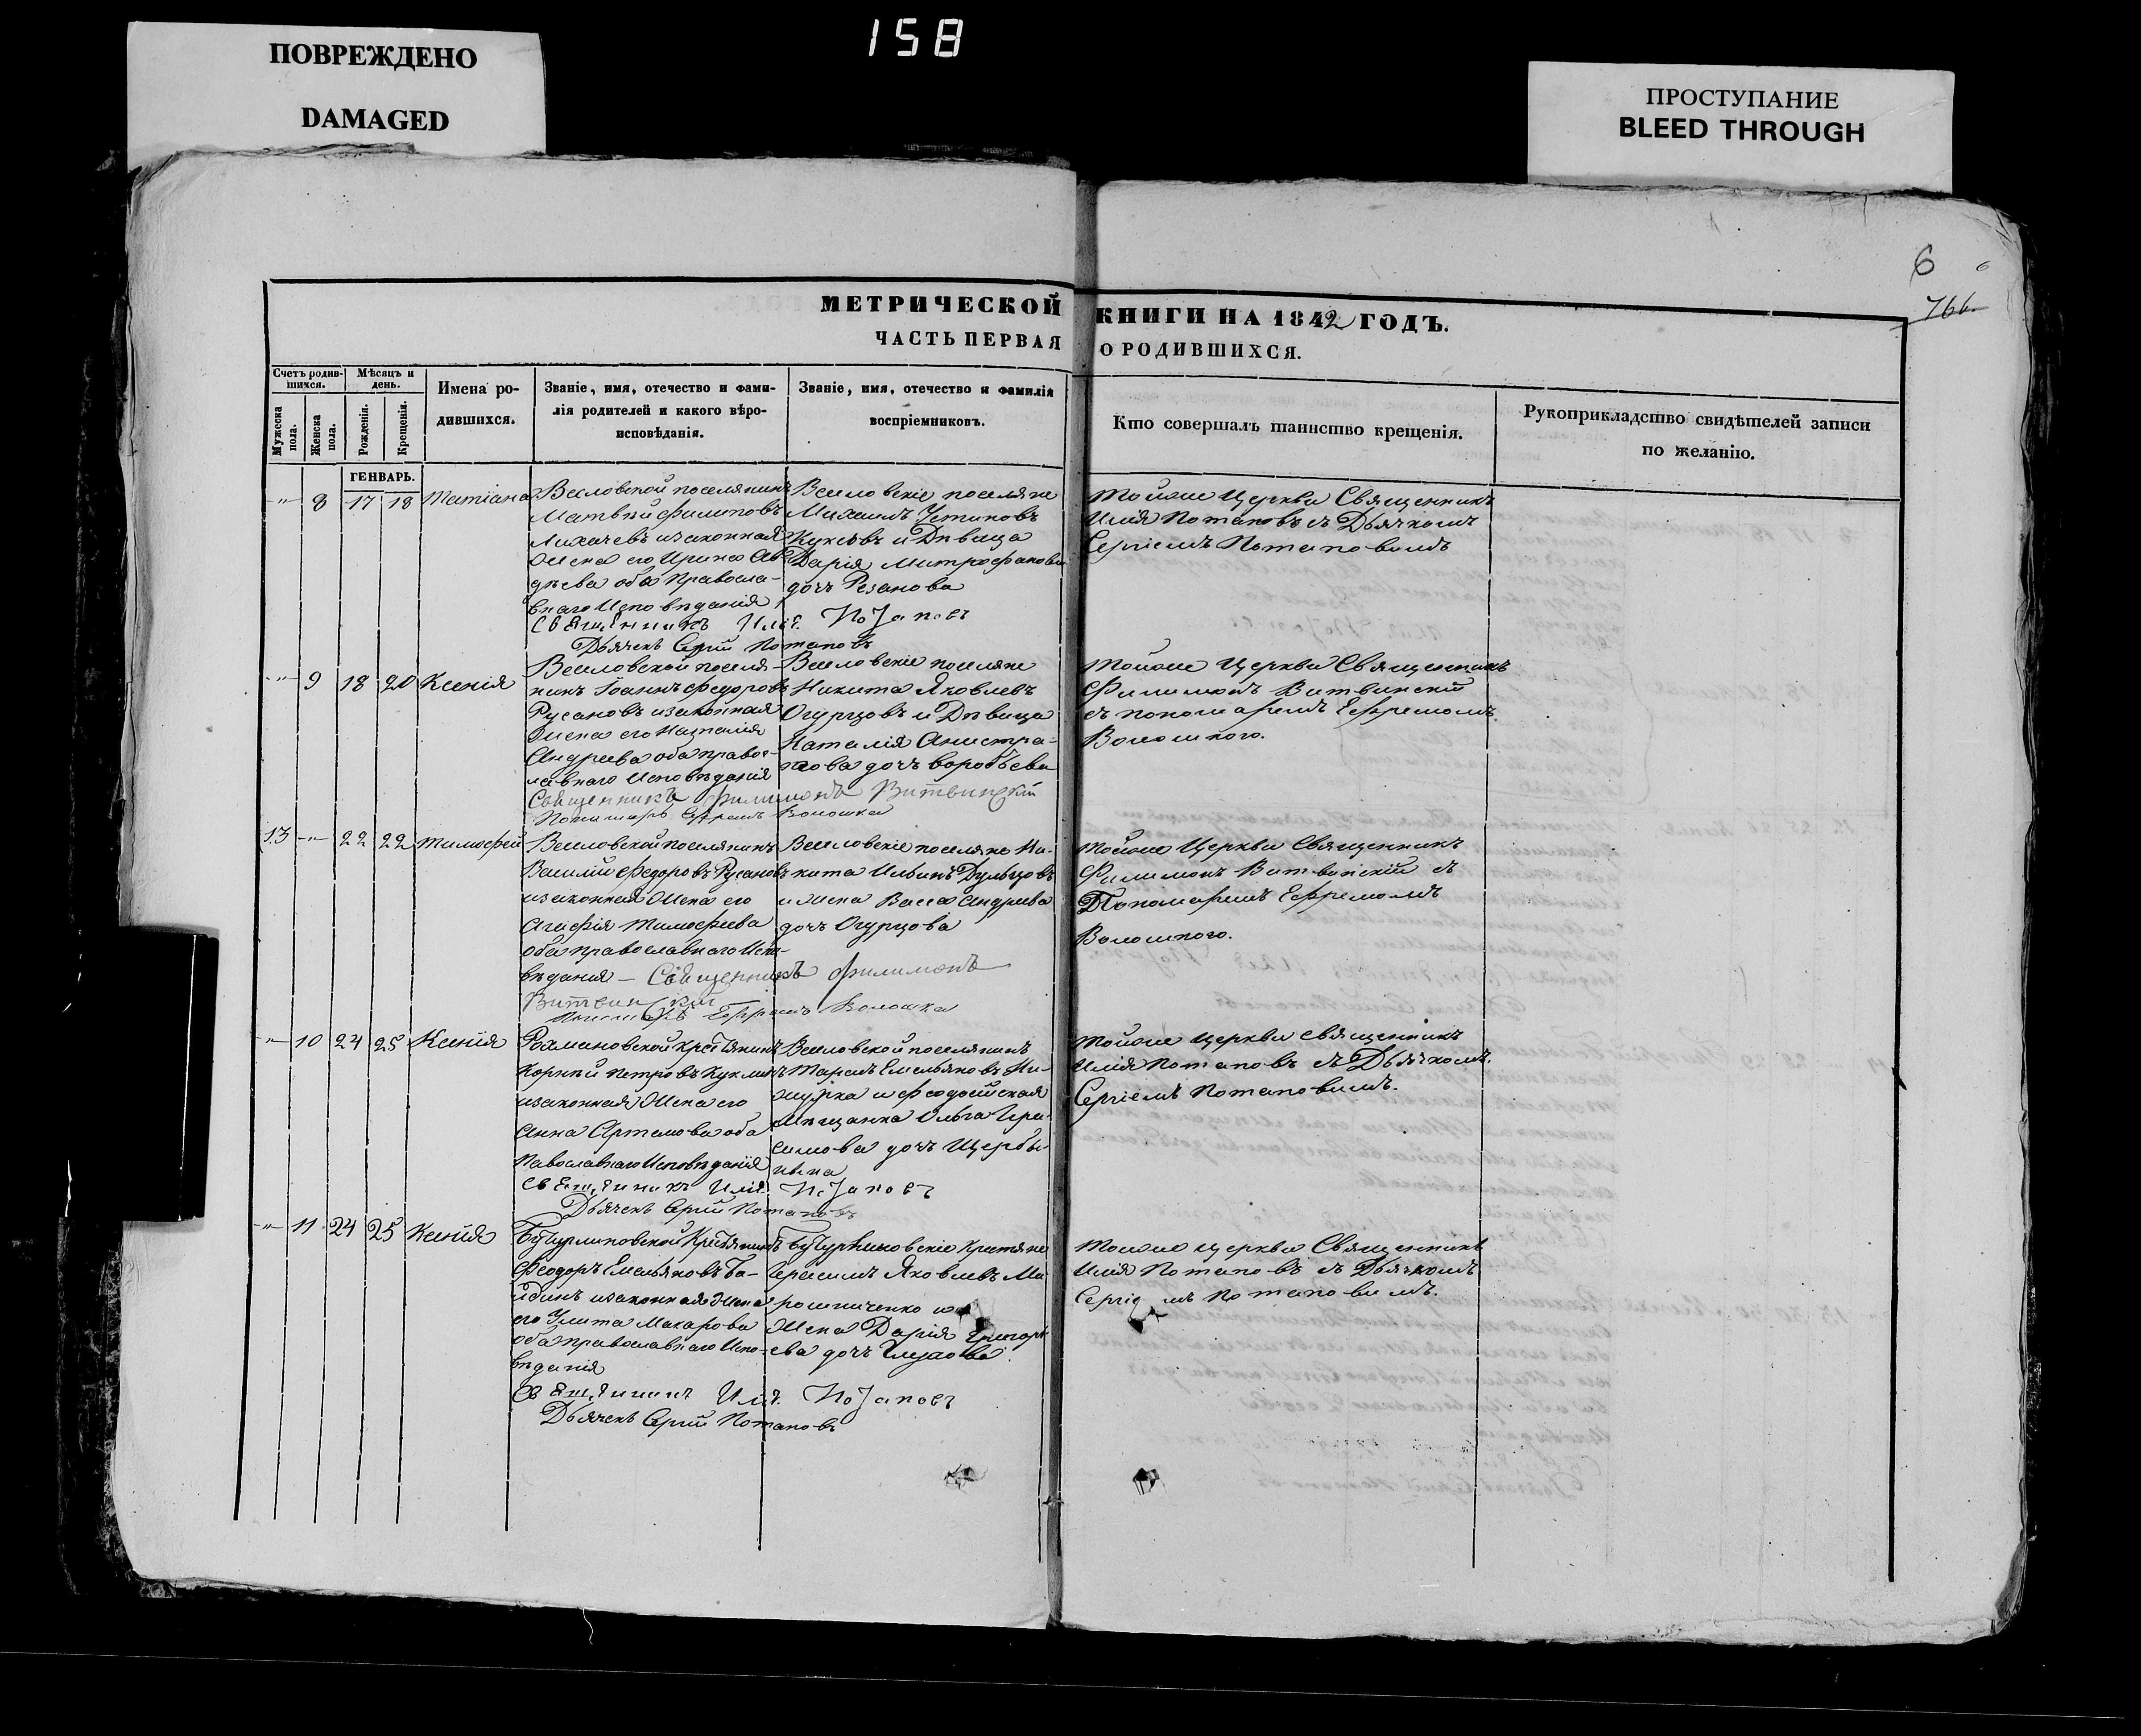 158
ПОВРЕЖДЕНО
DAMAGED
ПРОСТУПАНИЕ
BLEED THROUGH
6
6
766.
МЕТРИЧЕСКОЙ КНИГИ НА 1842 ГОДЪ.
ЧАСТЬ ПЕРВАЯ О РОДИВШИХСЯ.
Счетъ родив-
шихся.
Мѣсяцъ и
день.
Мужеска
пола.
Женска
пола.
Рожденія.
Крещенія.
Имена ро-
дившихся.
Званіе, имя, отечество и фами-
лія родителей и какого вѣро-
исповѣданія.
Званіе, имя, отечество и фамилія
воспріемниковъ.
Кто совершалъ таинство крещенія.
Рукоприкладство свидѣтелей записи
по желанію.
ГЕНВАРЬ.
-"- 8 17 18 Татіана
Веселовской поселянинъ
Матвѣй Филиповъ
Лихачевъ изаконная
Жена его Ирина Ав
дѣева оба Правосла-
внаго Исповѣданія
Веселовскіе поселяне
Михаилъ Устиновъ
и Дѣвица
Дарія Митрофанова
дочь Резанова
Тойже Церкви Священникъ
Илія Потаповъ съ Дьячкомъ
Сергіемъ Потаповымъ
Священникъ Илія Потаповъ
Дьячекъ Сергій Потаповъ
-"- 9 18 20 Ксенія
Веселовской поселя-
нинъ Іоаннъ Федоровъ
Русановъ изаконная
Жена его Наталія
Андреева оба правос-
лавнаго Исповѣданія
Веселовскіе поселяне
Никита Яковлевъ
Огурцовъ и Дѣвица
Наталія
дочь Воробьева
Тойже Церкви Священникъ
Филимонъ Витвинскій
съ пономаремъ Ефремомъ
Волошкого.
Священникъ Филимонъ Витвинскій
Пономарь Ефремъ Волошка
13 -"- 22 22 Тимофей
Веселовской поселянинъ
Василій Федоровъ Русановъ
изаконная Жена его
Агафія Тимофеева
оба православнаго Испо-
вѣданія – Священникъ Филимонъ
Витвинскій
Пономарь Ефремъ Волошка
Веселовскіе поселяне Ни-
кита Ильинъ Дульцовъ
и Жена Васса Андреева
дочь Огурцова
Тойже Церкви Священникъ
Филимонъ Витвинскій съ
Пономаремъ Ефремомъ
Волошкого.
-"- 10 24 25 Ксенія
Рахмановской Крестьянинъ
Корнѣй Петровъ Куклинъ
изаконная Жена его
Анна Артемова оба
Павославнаго Исповѣданія
Веселовской поселянинъ
Тарасъ Емельяновъ Ни-
и Феодосійская
Мѣщанка Ольга Гера-
симова дочь Щербы-
нина
Тойже Церкви Священникъ
Илія Потаповъ съ Дьячкомъ.
Сергіемъ Потаповымъ.
Священникъ Илія Потаповъ
Дьячекъ Сергій Потаповъ
-"- 11 24 25 Ксенія
Бутурлиновской Крестьянинъ
Феодоръ Емельяновъ Ба-
изаконная Жена
его Улита Макарова
оба православнаго Испо-
вѣданія
Бутурлиновскіе Крестяне
Герасимъ Яковлевъ Ми-
рошниченко и
Жена Дарія Григорь
ева дочь
Тойже Церкви Священникъ
Илія Потаповъ съ Дьячкомъ
Сергіемъ Потаповымъ.
Священникъ Илія Потаповъ
Дьячекъ Сергій Потаповъ